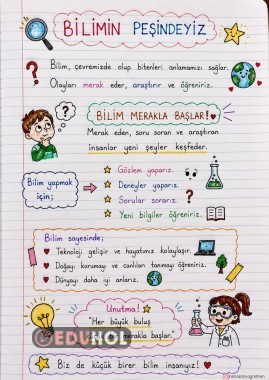 BİLİMİN PEŞİNDEYİZ
Bilim, çevremizde olup bitenleri anlamamızı sağlar.
Olayları merak eder, araştırır ve öğreniriz.
BİLİM MERAKLA BAŞLAR!
Merak eden, soru soran ve araştıran
insanlar yeni şeyler keşfeder.
Bilim yapmak
için;
Gözlem yaparız.
Deneyler yaparız.
Sorular sorarız.
Yeni bilgiler öğreniriz.
Bilim sayesinde;
Teknoloji gelişir ve hayatımız kolaylaşır.
Doğayı korumayı ve canlıları tanımayı öğreniriz.
Dünyayı daha iyi anlarız.
Unutma!
"Her büyük buluş
merakla başlar."
EDUHOL
Biz de küçük birer bilim insanıyız!